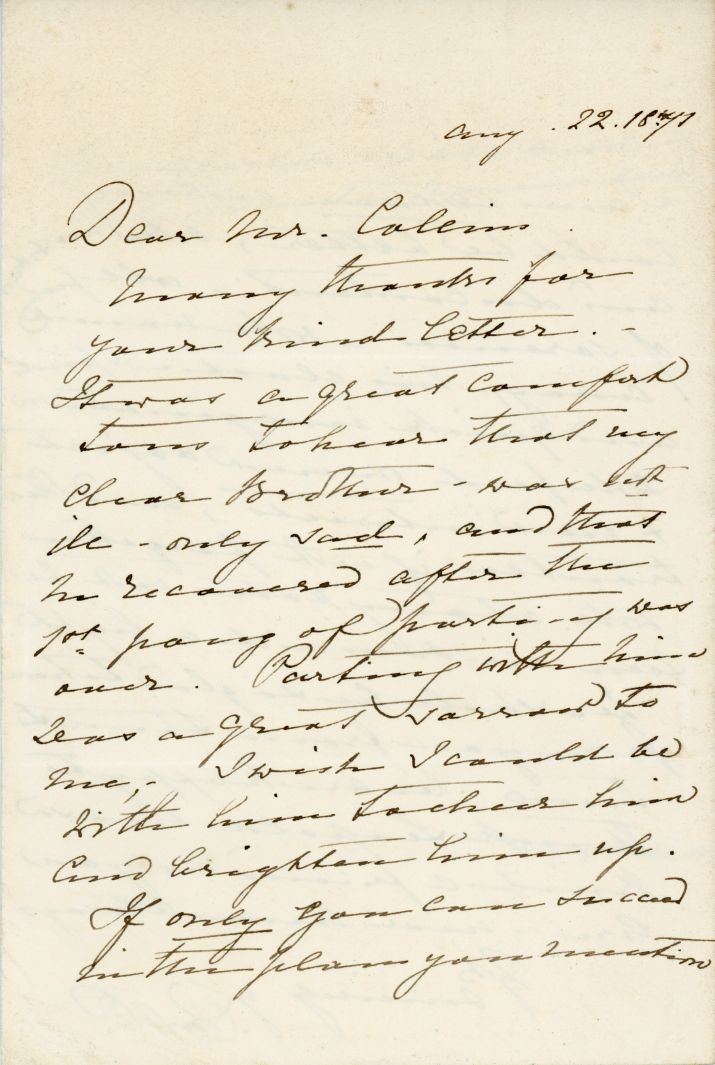 Aug. 22. 1871
Dear Mr. Collins
Many thanks for
your kind letter. -
It was a great comfort
to us to hear that my
dear Brother - was not
ill - only sad, and that
he recovered after the
1st pang of parting was
over. Parting with him
was a great sorrow to
me, - I wish I could be
with him to cheer him
and brighten him up.
If only you can succeed
in the plan you mention